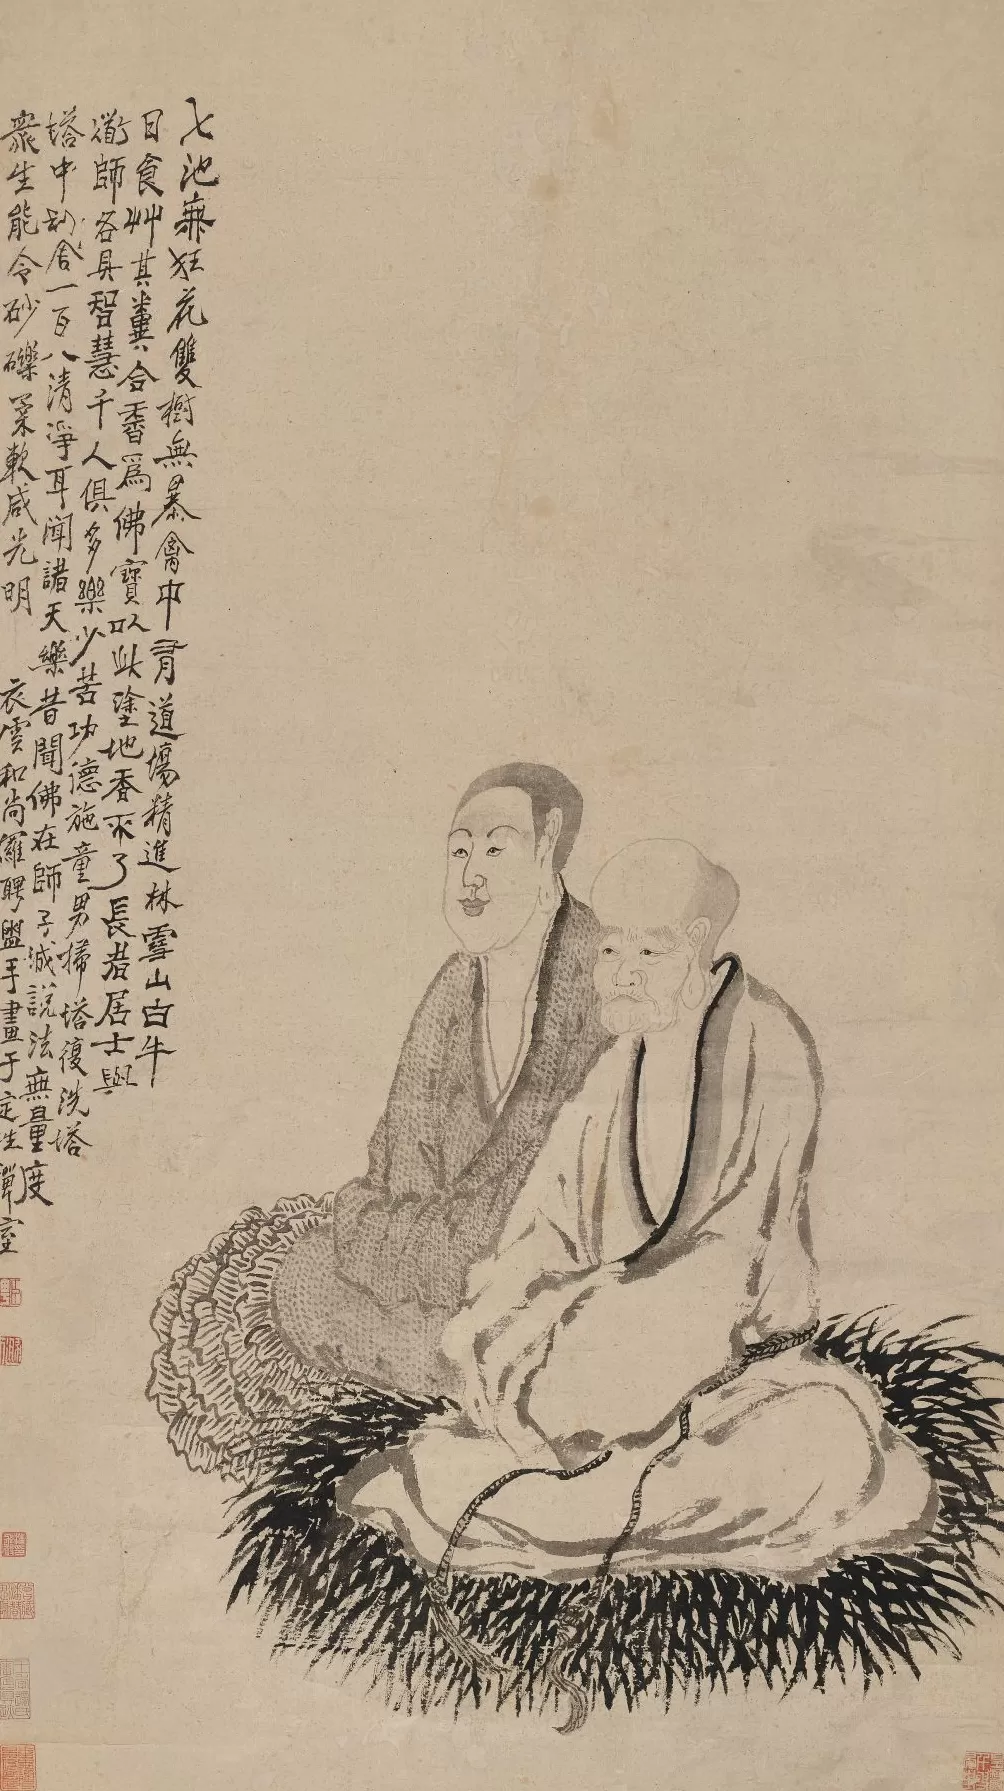 七池無狂花雙樹無暴禽中有道場精進林雪山白牛
日食艸其糞合香爲佛寶以此塗地香不了長者居士與
衜師各具智慧千人俱多樂少苦功德施童男掃塔復洗塔
塔中利舍一百八清淨耳聞諸天樂昔聞佛在師子城說法無量度
衆生能令砂礫柔軟咸光明 衣雲和尚羅聘盥手畫于定性禪室